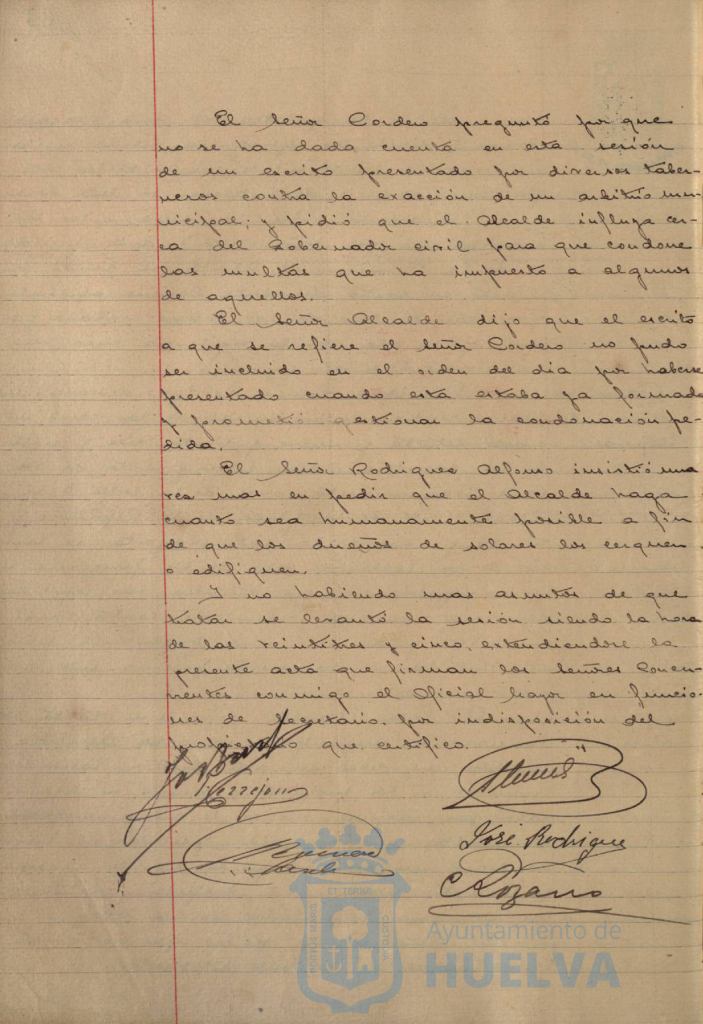 El Señor Cordero preguntó por que
no se ha dada cuenta en esta sesión
de un escrito presentado por diversos taber-
neros contra la exacción de un arbitrio mu-
nicipal; y pidió que el Alcalde influya cer-
ca del Gobernador civil para que condone
las multas que ha impuesto a algunos
de aquellos.
El Señor Alcalde dijo que el escrito
a que se refiere el Señor Cordero no pudo
ser incluido en el orden del dia por haberse
presentado cuando esta estaba ya formada
y prometió gestionar la condonación pe-
dida.
El Señor Rodriguez Alfonso insistió una
vez mas en pedir que el Alcalde haga
cuanto sea humanamente posible a fin
de que los dueños de solares los cerquen
o edifiquen.
Y no habiendo mas asuntos de que
tratar se levantó la sesión siendo la hora
de las veintitres y cinco, extendiendose la
presente acta que firman los Señores Concu-
rrentes conmigo el Oficial Mayor en funcio-
nes de Secretario, por indisposición del
propietario que certifico.
Terrejon
José Rodrigue
C Lozano
Ayuntamiento de
HUELVA